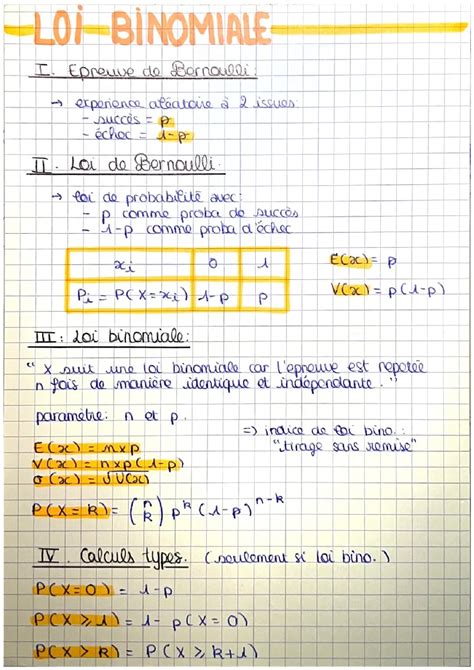 LOI BINOMIALE
I. Epreuve de Bernoulli:
→ experience aléatoire à 2 issues:
- succès = p
- échec = 1-p
II. Loi de Bernoulli.
→ loi de probabilité avec:
- p comme proba de succès
- 1-p comme proba d'échec
xi 0 1
Pi = P(X=xi) 1-p p
E(x) = p
V(x) = p(1-p)
III: Loi binomiale:
“ X suit une loi binomiale car l'epreuve est repetée
n fois de manière identique et indépendante. ”
paramètre: n et p.
=> indice de loi bino. :
"tirage sans remise"
E(x) = n×p
V(x) = n×p(1-p)
σ(x) = √V(x)
P(X=k) = (n k) p^k (1-p)^n-k
IV. Calculs types. (seulement si loi bino.)
P(X=0) = 1-p
P(X⩾1) = 1- p(X=0)
P(X>k) = P(X⩾k+1)